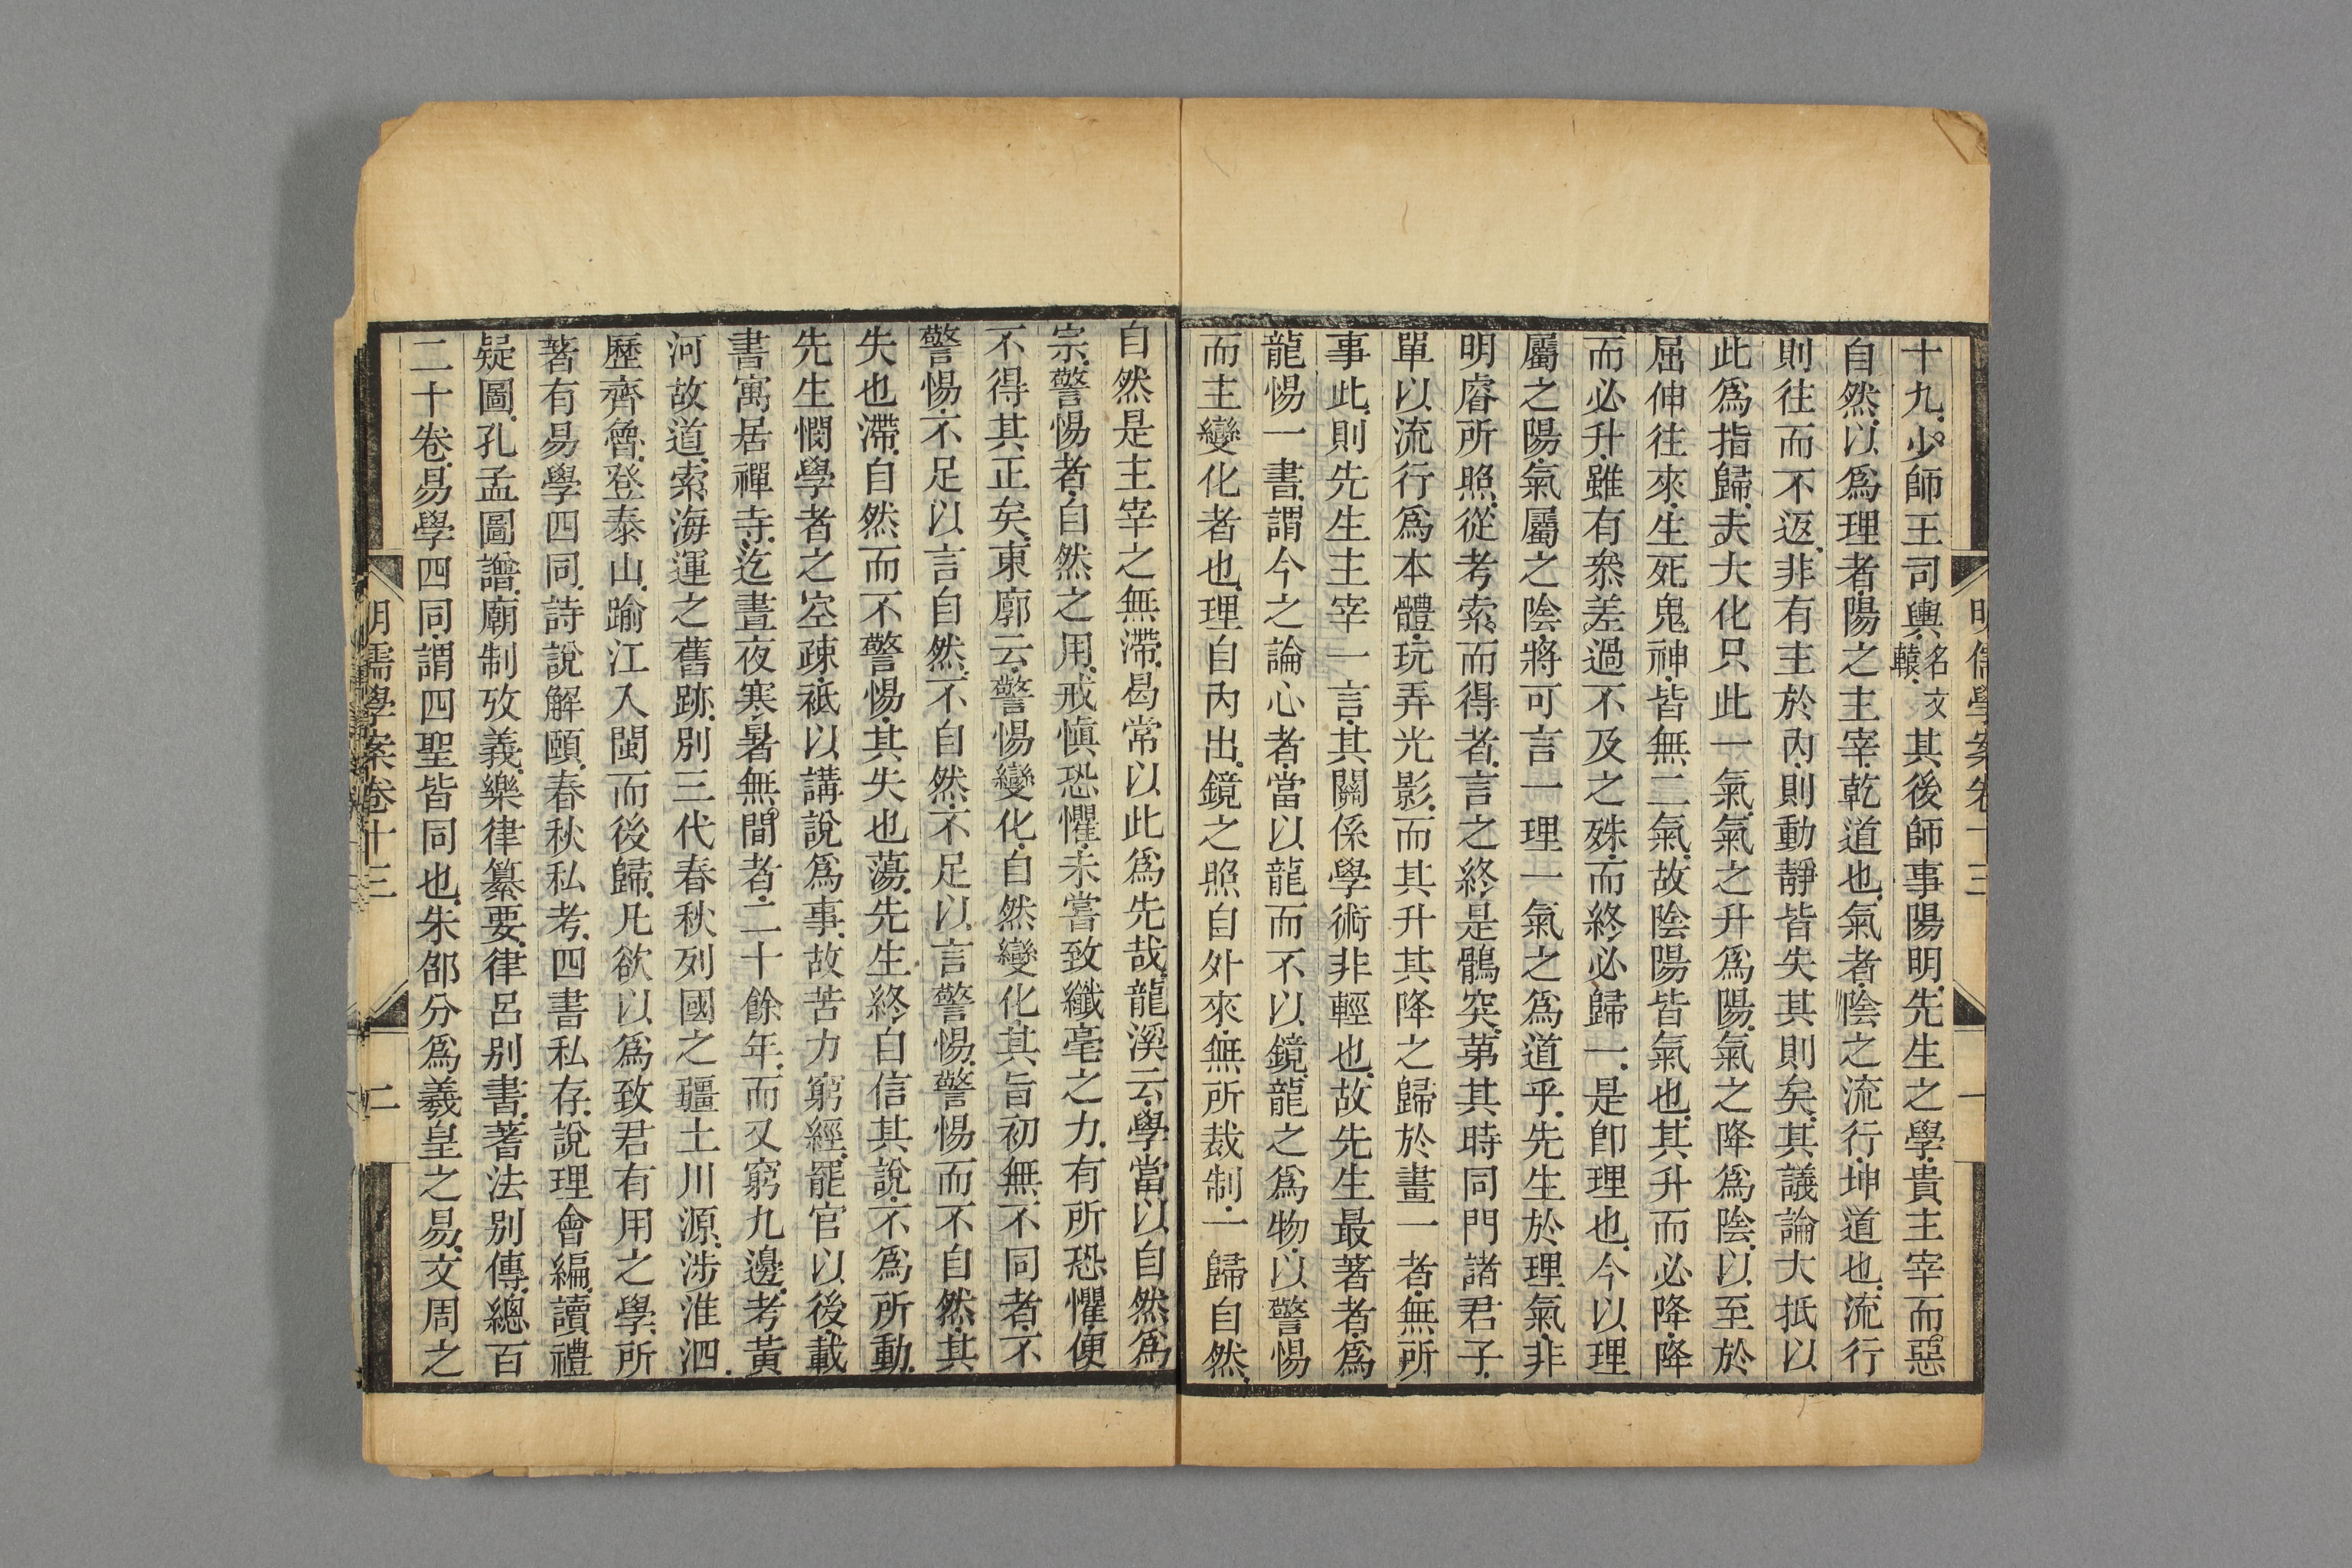 明儒學案卷十三
一
十九。少師王司輿。名文轅。其後師事陽明。先生之學。貴主宰而惡
自然。以爲理者。陽之主宰。乾道也。氣者。陰之流行。坤道也。流行
則往而不返。非有主於內。則動靜皆失其則矣。其議論大抵以
此爲指歸。夫大化只此一氣。氣之升爲陽。氣之降爲陰。以至於
屈伸往來。生死鬼神。皆無二氣。故陰陽皆氣也。其升而必降。降
而必升。雖有叅差過不及之殊。而終必歸一。是卽理也。今以理
屬之陽。氣屬之陰。將可言一理一氣之爲道乎。先生於理氣。非
明睿所照。從考索而得者。言之終是鶻突。第其時同門諸君子。
單以流行爲本體。玩弄光影。而其升其降之歸於畫一者。無所
事此。則先生主宰一言。其關係學術非輕也。故先生最著者。爲
龍惕一書。謂今之論心者。當以龍而不以鏡。龍之爲物。以警惕
而主變化者也。理自內出。鏡之照自外來。無所裁制。一歸自然。
自然是主宰之無滯。曷常以此爲先哉。龍溪云。學當以自然爲
宗。警惕者。自然之用。戒慎恐懼。未嘗致纖毫之力。有所恐懼。便
不得其正矣。東廓云。警惕變化。自然變化。其旨初無不同者。不
警惕。不足以言自然。不自然。不足以言警惕。警惕而不自然。其
失也滯。自然而不警惕。其失也蕩。先生終自信其說。不爲所動。
先生憫學者之空疎。祇以講說爲事。故苦力窮經。罷官以後。載
書寓居禪寺。迄晝夜寒暑無間者。二十餘年。而又窮九邊。考黃
河故道。索海運之舊跡。別三代春秋列國之疆土川源。涉淮泗。
歷齊魯。登泰山。踰江入閩而後歸。凡欲以爲致君有用之學。所
著有易學四同。詩說解頤。春秋私考。四書私存。說理會編。讀禮
疑圖。孔孟圖譜。廟制攷義。樂律纂要。律呂别書。蓍法別傳。總百
二十卷。易學四同。謂四聖皆同也。朱邵分爲羲皇之易。文周之
明儒學案卷十三
二